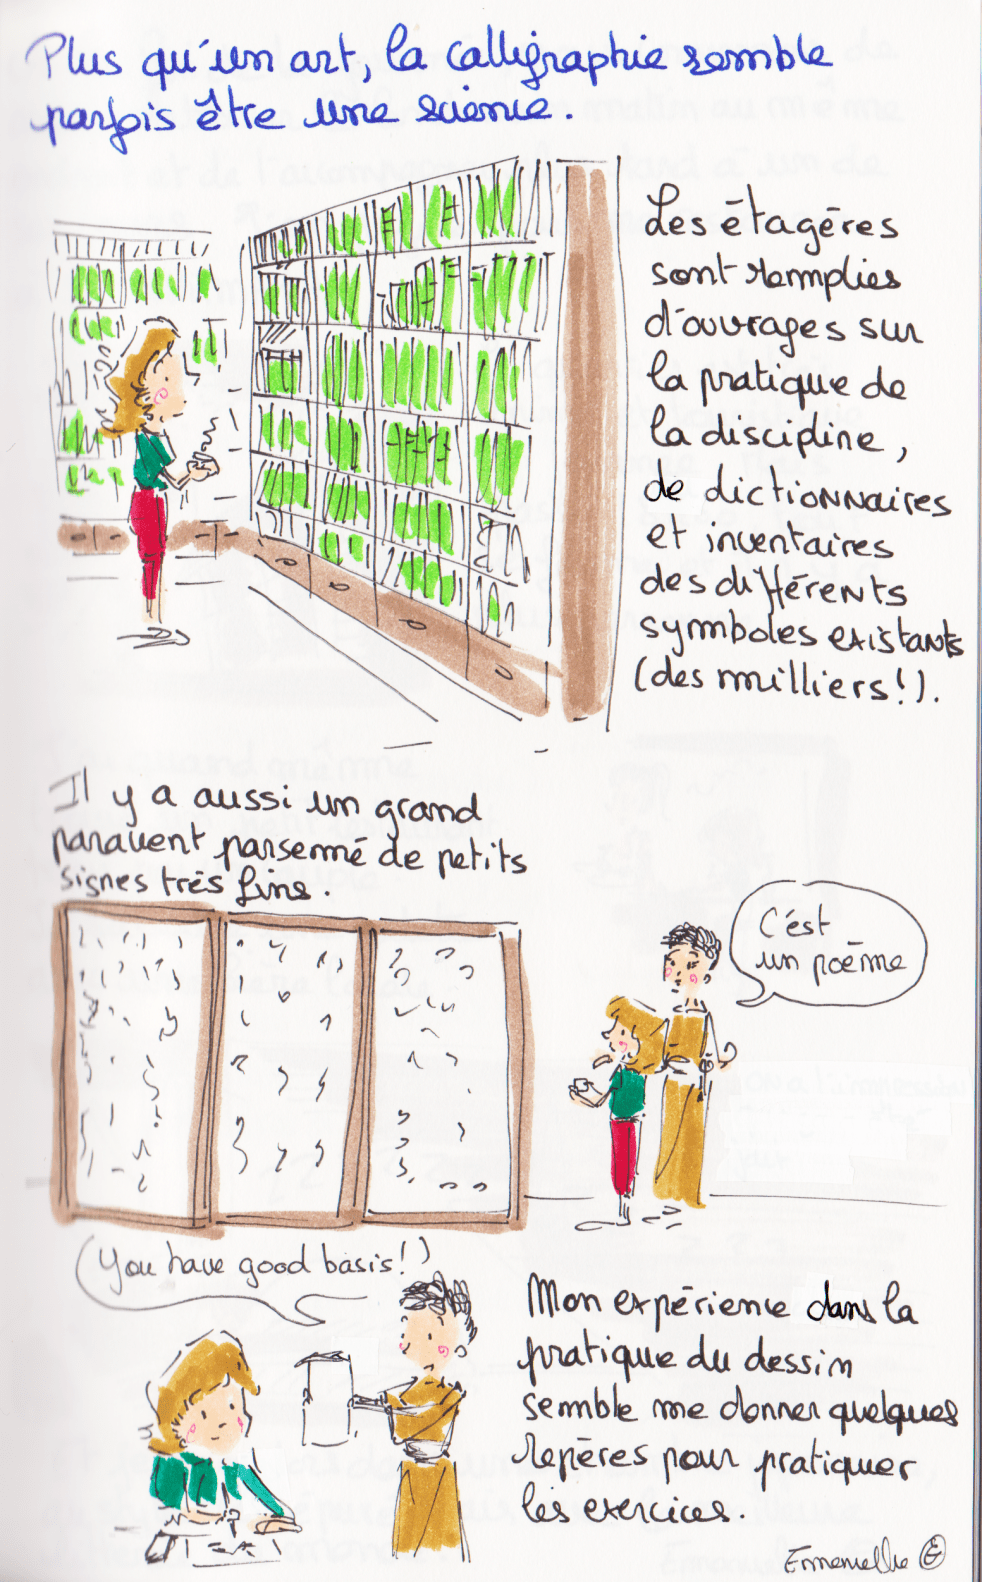 Plus qu'un art, la calligraphie semble
parfois être une science.
Les étagères
sont remplies
d'ouvrages sur
la pratique de
la discipline,
de dictionnaires
et inventaires
des différents
symboles existants
(des milliers!).
Il y a aussi un grand
paravent parsemé de petits
signes très fins.
C'est
un poème
(You have good basis!)
Mon expérience dans la
pratique du dessin
semble me donner quelques
repères pour pratiquer
les exercices.
Emmanuelle E